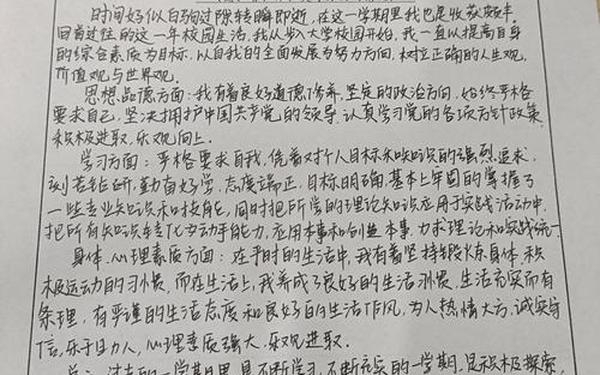 时间好似白驹过隙转瞬即逝,在这一学期里我也是收获颇丰.
回首过往的这一年校园生活,我从步入大学校园开始,我一直以提高自身
的综合素质为目标,以自我的全面发展为努力方向,树立正确的人生观,
价值观与世界观.
思想品德方面:我有着良好道德修养,坚定的政治方向,始终严格
要求自己,坚决拥护中国共产党的领导,认真学习党的各项方针政策,
积极进取,乐观向上.
学习方面:严格要求自我,凭着对个人目标和知识的强烈追求,
刻苦钻研,勤奋好学,态度端正,目标明确,基本上牢固的掌握了
一些专业知识和技能,同时把所学的理论知识应用于实践活动中,
把所有知识转化为动手能力,应用本事和创造本事,力求理论和实践统一
身体,心理素质方面:在平时的生活中,我有着坚持锻炼身体,积
极运动的习惯,而在生活上,我养成了良好的生活习惯,生活充实而有
条理,有严谨的生活态度和良好的生活作风,为人热情大方,诚实守
信,乐于助人,心理素质强大,乐观进取.
过去的一学期里,是不断学习,不断充实的一学期,是积极探索,